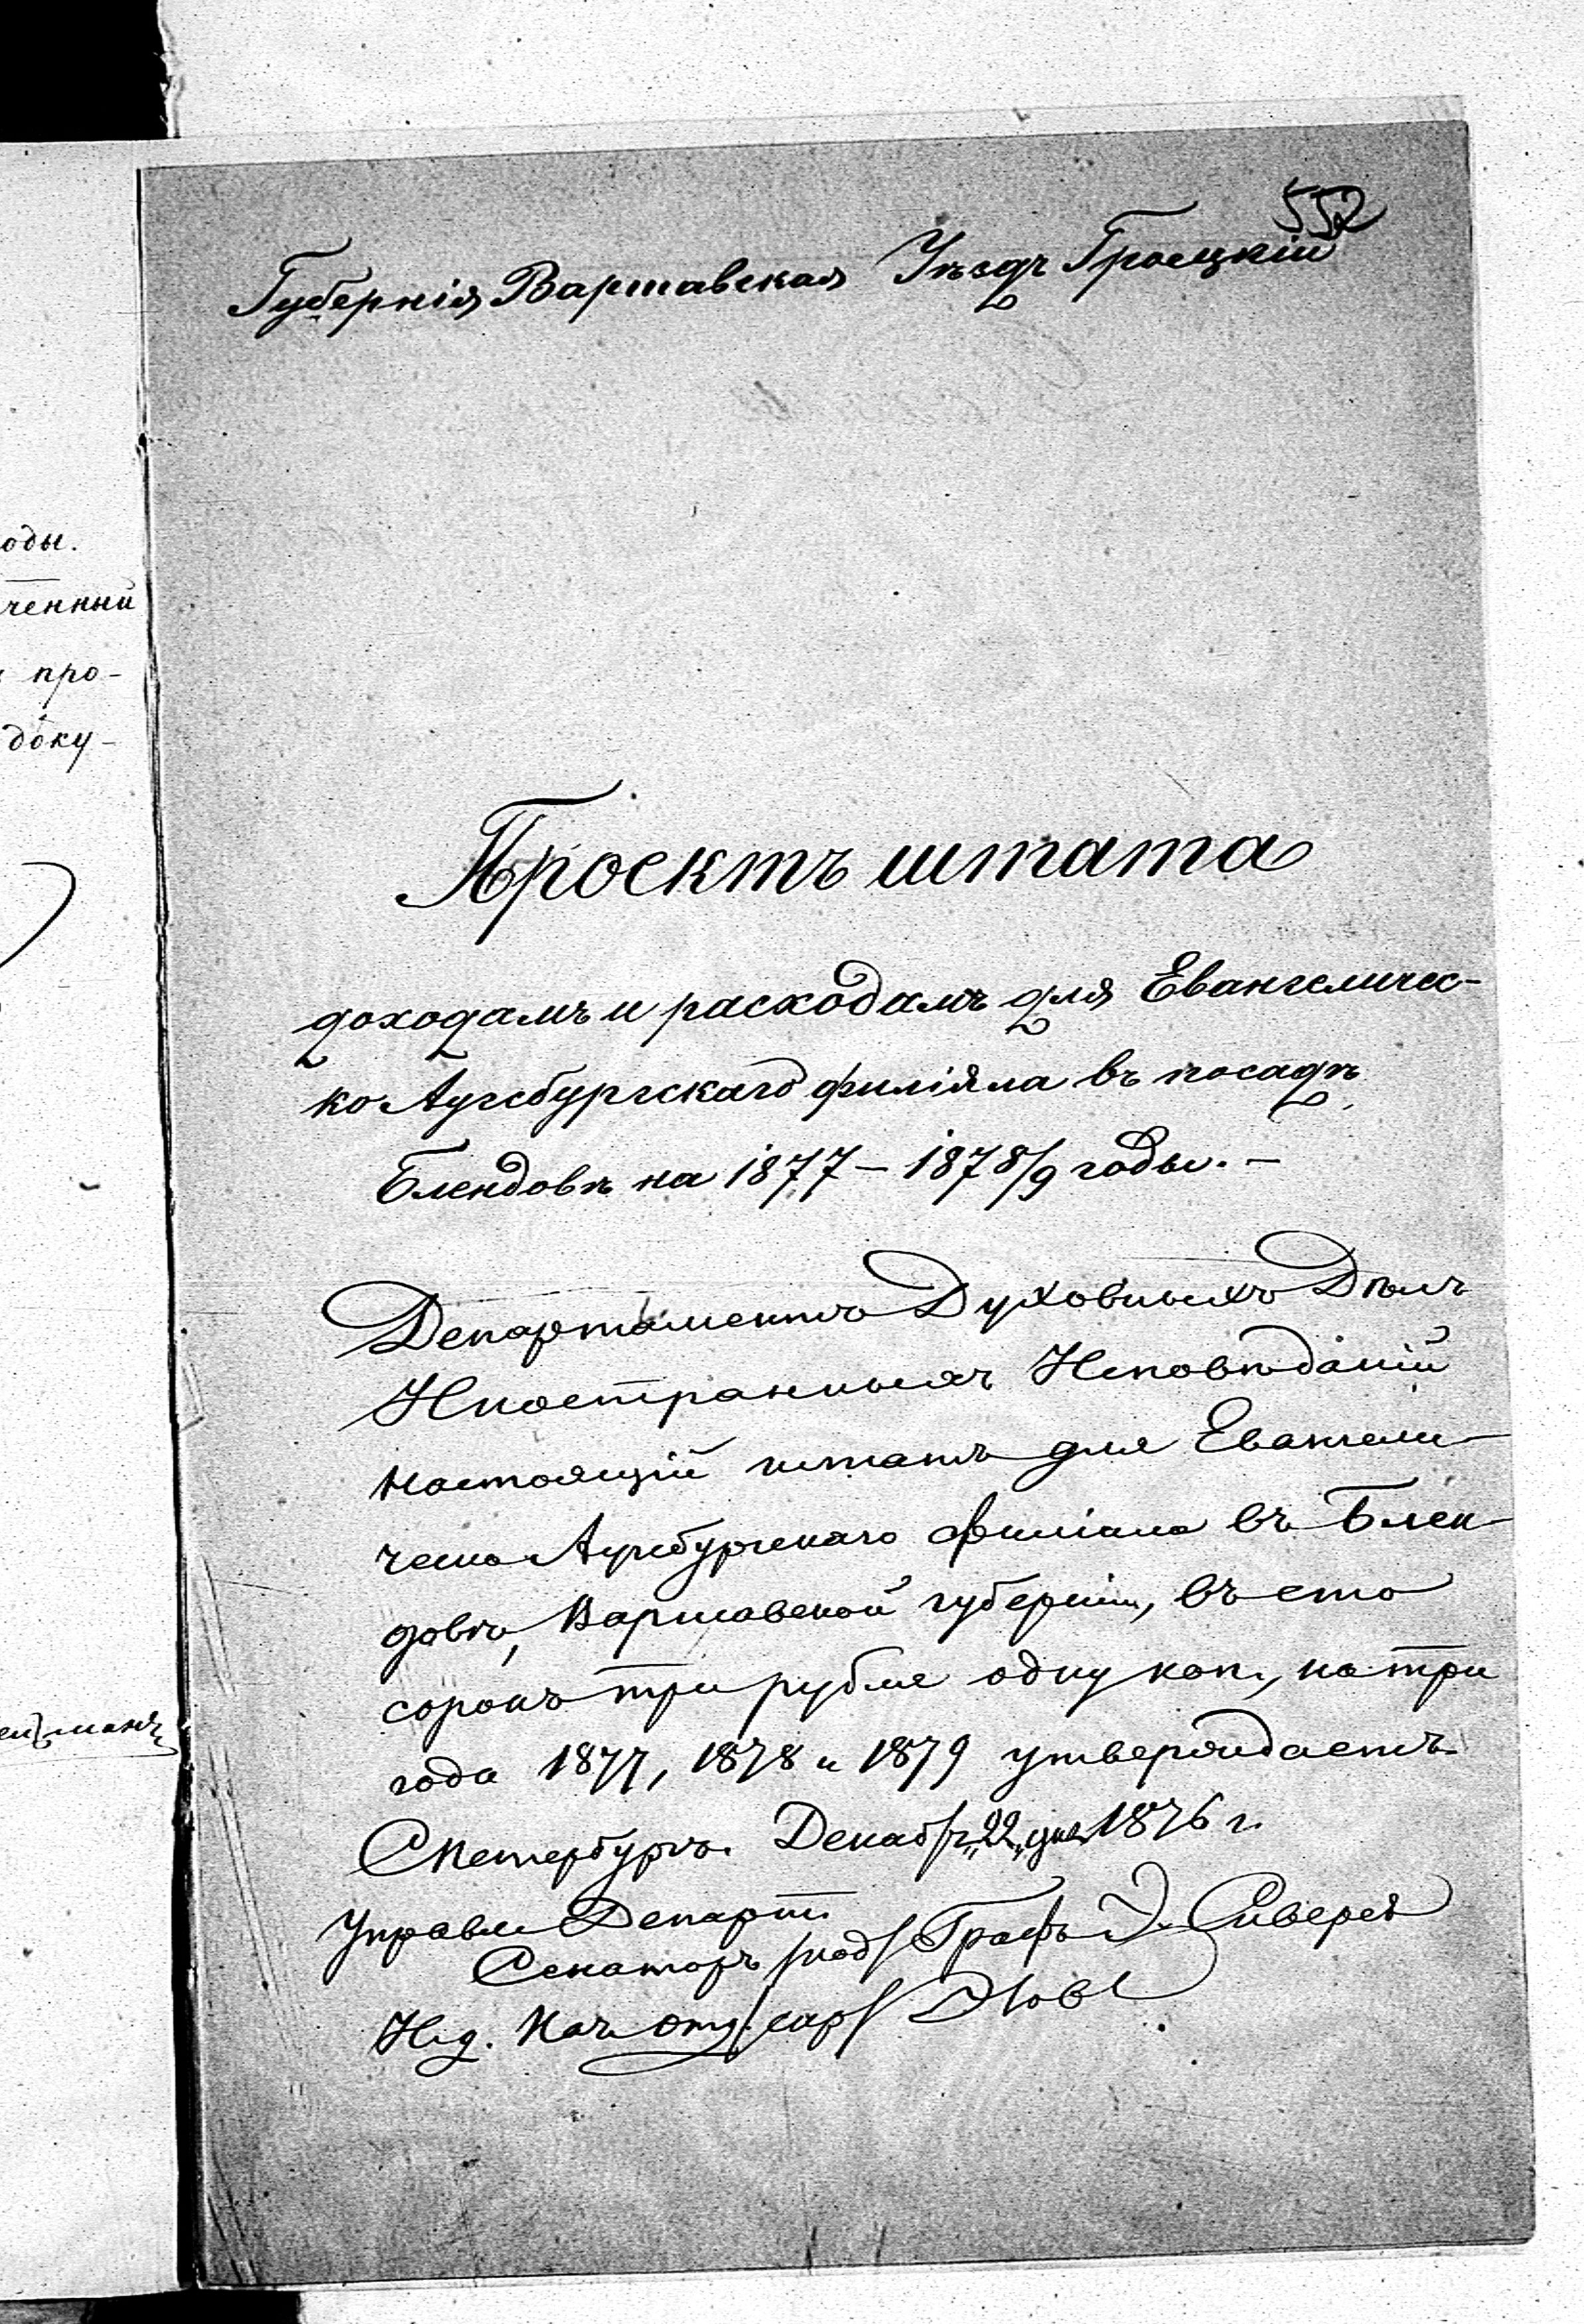 552
Губернія Варшавская Уѣздъ Гроецкій
Проектъ штата
доходамъ и расходамъ для Евангеличес-
ко Аугсбургскаго филіяла въ посадѣ
Блендовѣ на 1877 – 1878/9 годы. –
Департаментъ Духовныхъ Дѣлъ
Иностранныхъ Исповѣданій
настоящій штатъ для Евангели-
ческо Аугсбургскаго филіала въ Блен-
довѣ, Варшавской губерніи, въ сто
сорокъ три рубля одну коп., на три
года 1877, 1878 и 1879 утверждаетъ.
СПетербургъ. Декабр. „22„ дня 1876 г.
Управл. Департ.
Сенаторъ /под/ Графъ Сиверсъ
И.д. Нач. Отд. /скр/
оды.
ченный
про-
доку-